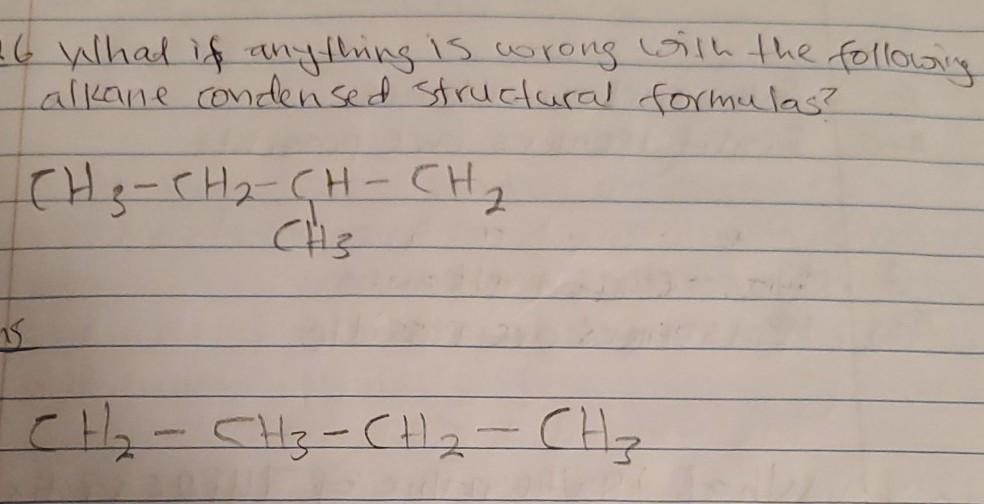 .6 What if anything is wrong with the following
alkane condensed structural formulas?
CH3-CH2-CH-CH2
CH3
is
CH2-CH3-CH2-CH3